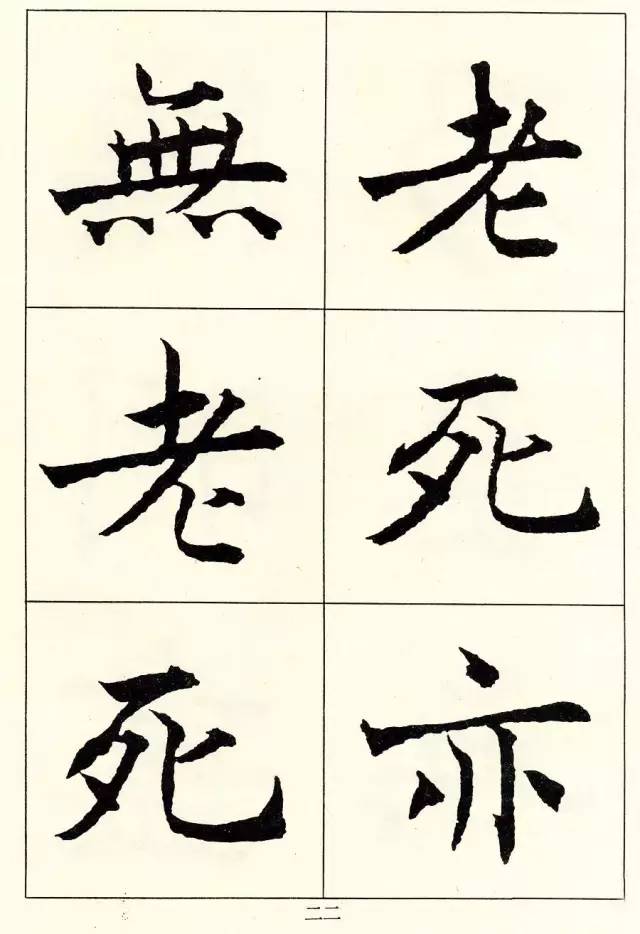 老死亦
無老死
二二